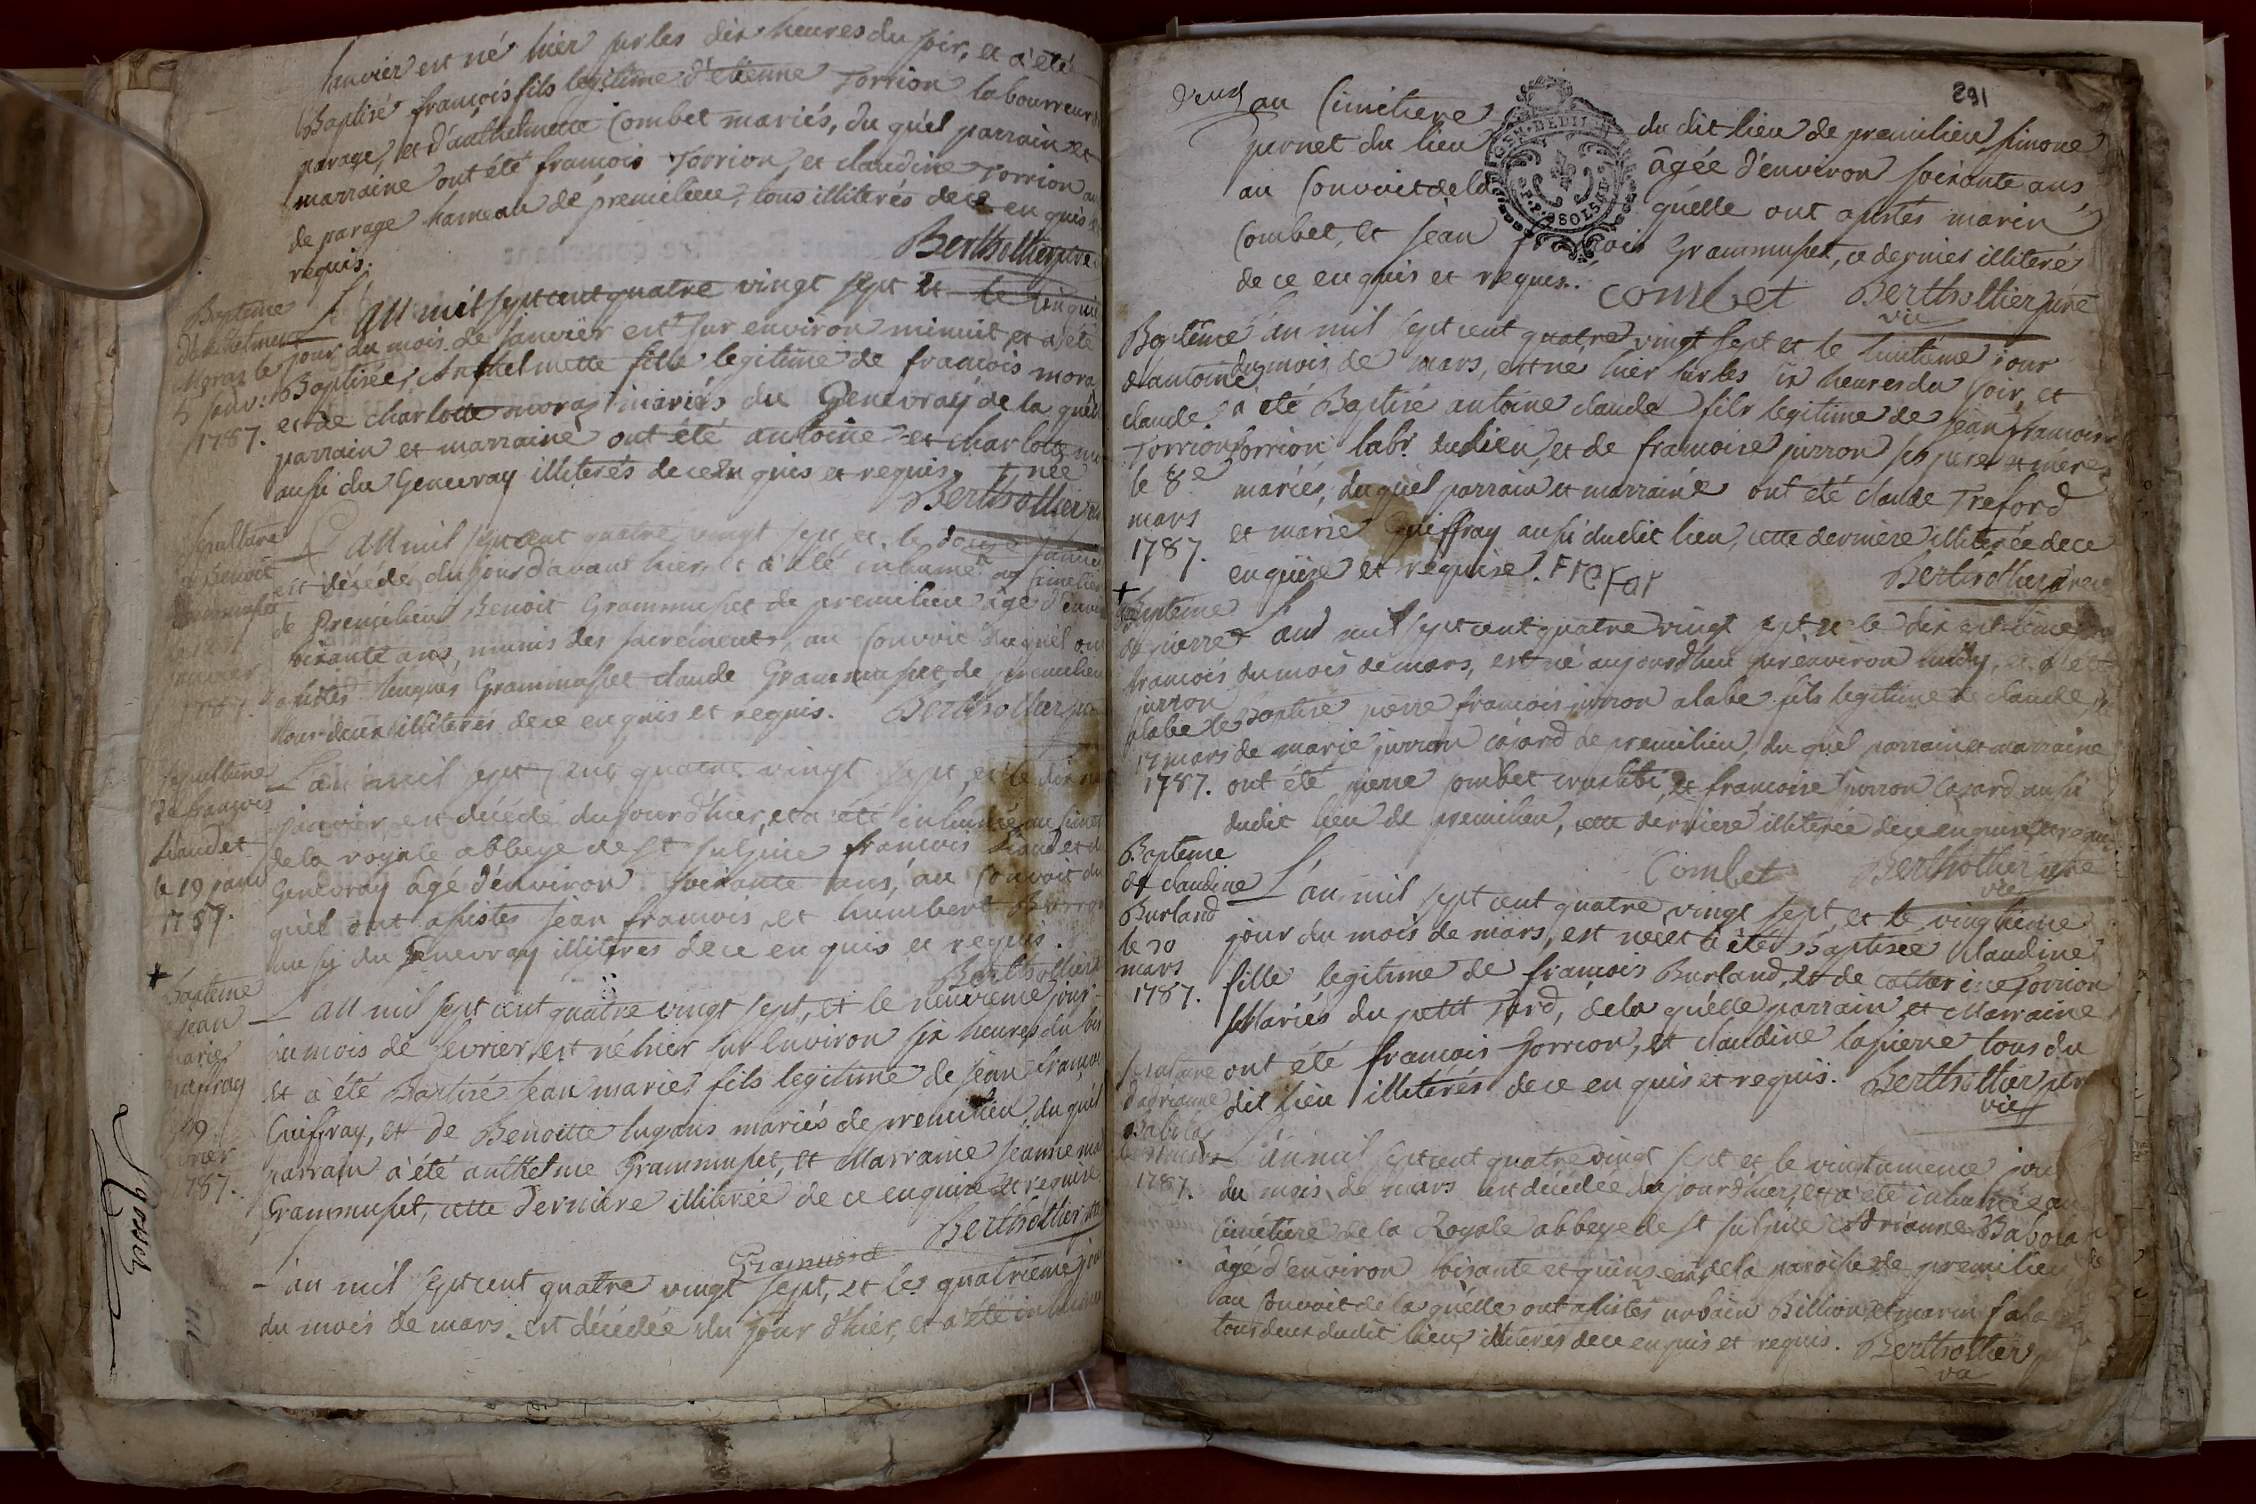 janvier est né hier sur les dix heures du soir, et a été
Baptisé françois fils legitime d'etienne Torrion laboureur
parage, et d'anthelmette Combet mariés, du quel parrain et
marraine ont été françois Torrion, et claudine Torrion
de parage hameau de premilieu, tous illiterés de ce enquis et
requis.
Berthollier curé
Bapteme
d'anthelmette
Moraz le
5 janv:
1787.
L'an mil sept cent quatre vingt sept et le cinquie
jour du mois de janvier est sur environ minuit, et a été
Baptisée, Anthelmette fille legitime de françois mora
et de charlotte moraz mariés du Genevray de la quelle
parrain et marraine ont été antoine et charlotte
aussi du Genevray illiterés de ce enquis et requis, née
Berthollier
Sepulture
de Benoit
Grammusset
janvier
1787.
L'an mil sept cent quatre vingt sept et le douze janvier
est décédé du jour d'avant hier et a été inhumé au cimetiere
de Premilieu Benoit Grammusset de premilieu âgé d'environ
soixante ans, munis des sacrements, au convoit du quel ont
assistés hugues Grammusset claude Grammusset de premilieu
tous deux illiterés de ce enquis et requis. Berthollier
sepulture
de françois
Liaudet
le 19 janv
1787.
L'an mil sept cent quatre vingt sept, et le dix ne
janvier est décédé du jour d'hier, et a été inhumé au cimet
de la royale abbeye de st sulpice françois Liaudet de
Genevray âgé d'environ soixante ans, au convoit du
quel ont assistés jean françois et humbert
aussy du Genevray illiterés de ce enquis et requis.
Berthollier
+
Bapteme
jean
marie
Guiffray
le 9
fevrier
1787.
L'an mil sept cent quatre vingt sept, et le neuvieme jour
du mois de fevrier, est né hier sur environ six heures du soir
et a été Baptisé jean marie fils legitime de jean françois
Guiffray, et de Benoitte lugans mariés de premilieu du quel
parrain a été anthelme Grammusset, et Marraine jeanne ma
Grammusset, cette derniere illiterée de ce enquise et requise
Berthollier
Gramusset
L'an mil sept cent quatre vingt sept, et le quatrieme jour
du mois de mars est décédée du jour d'hier, et a été inhumée
291
deux
au Cimetiere du dit lieu de premilieu simone
pernet du lieu âgée d'environ soixante ans
au convoit de la quelle ont assistés marin
Combet, et jean françois Grammusset, ce dernier illiteré
de ce enquis et requis.
Combet Berthollier curé
vic
Baptême
d'antoine
claude
Torrion
le 8e
mars
1787.
L'an mil sept cent quatre vingt sept et le huitième jour
du mois de mars, est né hier sur les six heures du soir, et
a été Baptisé antoine claude fils legitime de jean françois
Torrion labr. du lieu, et de françoise jurron ses pere et mere
mariés, du quel parrain et marraine ont été claude Treford
et marie Guiffray aussi du dit lieu, cette derniere illiterée de ce
enquise et requise. Berthollier
+
Bapteme
de pierre
françois
jurron
alabe le
17 mars
1787.
L'an mil sept cent quatre vingt sept et le dix septieme
du mois de mars, est né aujourd'hui sur environ midy, et a été
Baptisé pierre françois jurron alabe fils legitime de claude,
de marie jurron cajard de premilieu, du quel parrain et marraine
ont été pierre combet et françoise jurron cajard aussi
dudit lieu de premilieu, cette derniere illiterée de ce enquise, et requise
Combet Berthollier curé
vic
Bapteme
de claudine
Burland
le 20
mars
1787.
L'an mil sept cent quatre vingt sept, et le vingtieme
jour du mois de mars, est née et a été Baptisée Claudine
fille legitime de françois Burland, et de catherine Torrion
Mariés du petit Tord, de la quelle parrain et Marraine
ont été françois Torrion, et claudine lapierre tous du
dit lieu illiterés de ce enquis et requis. Berthollier
vic
d'adrianne
Babola
1787.
L'an mil sept cent quatre vingt sept et le vingtunieme jour
du mois de mars est décédée du jour d'hier, et a été inhumée au
cimetiere de la Royale abbeye de st sulpice Adrianne Babola
âgé d'environ soixante et quinse ans de la paroisse de premilieu
au convoit de la quelle ont assistés urbain Billion et marin fala
tous deux dudit lieu illiterés de ce enquis et requis. Berthollier
vic